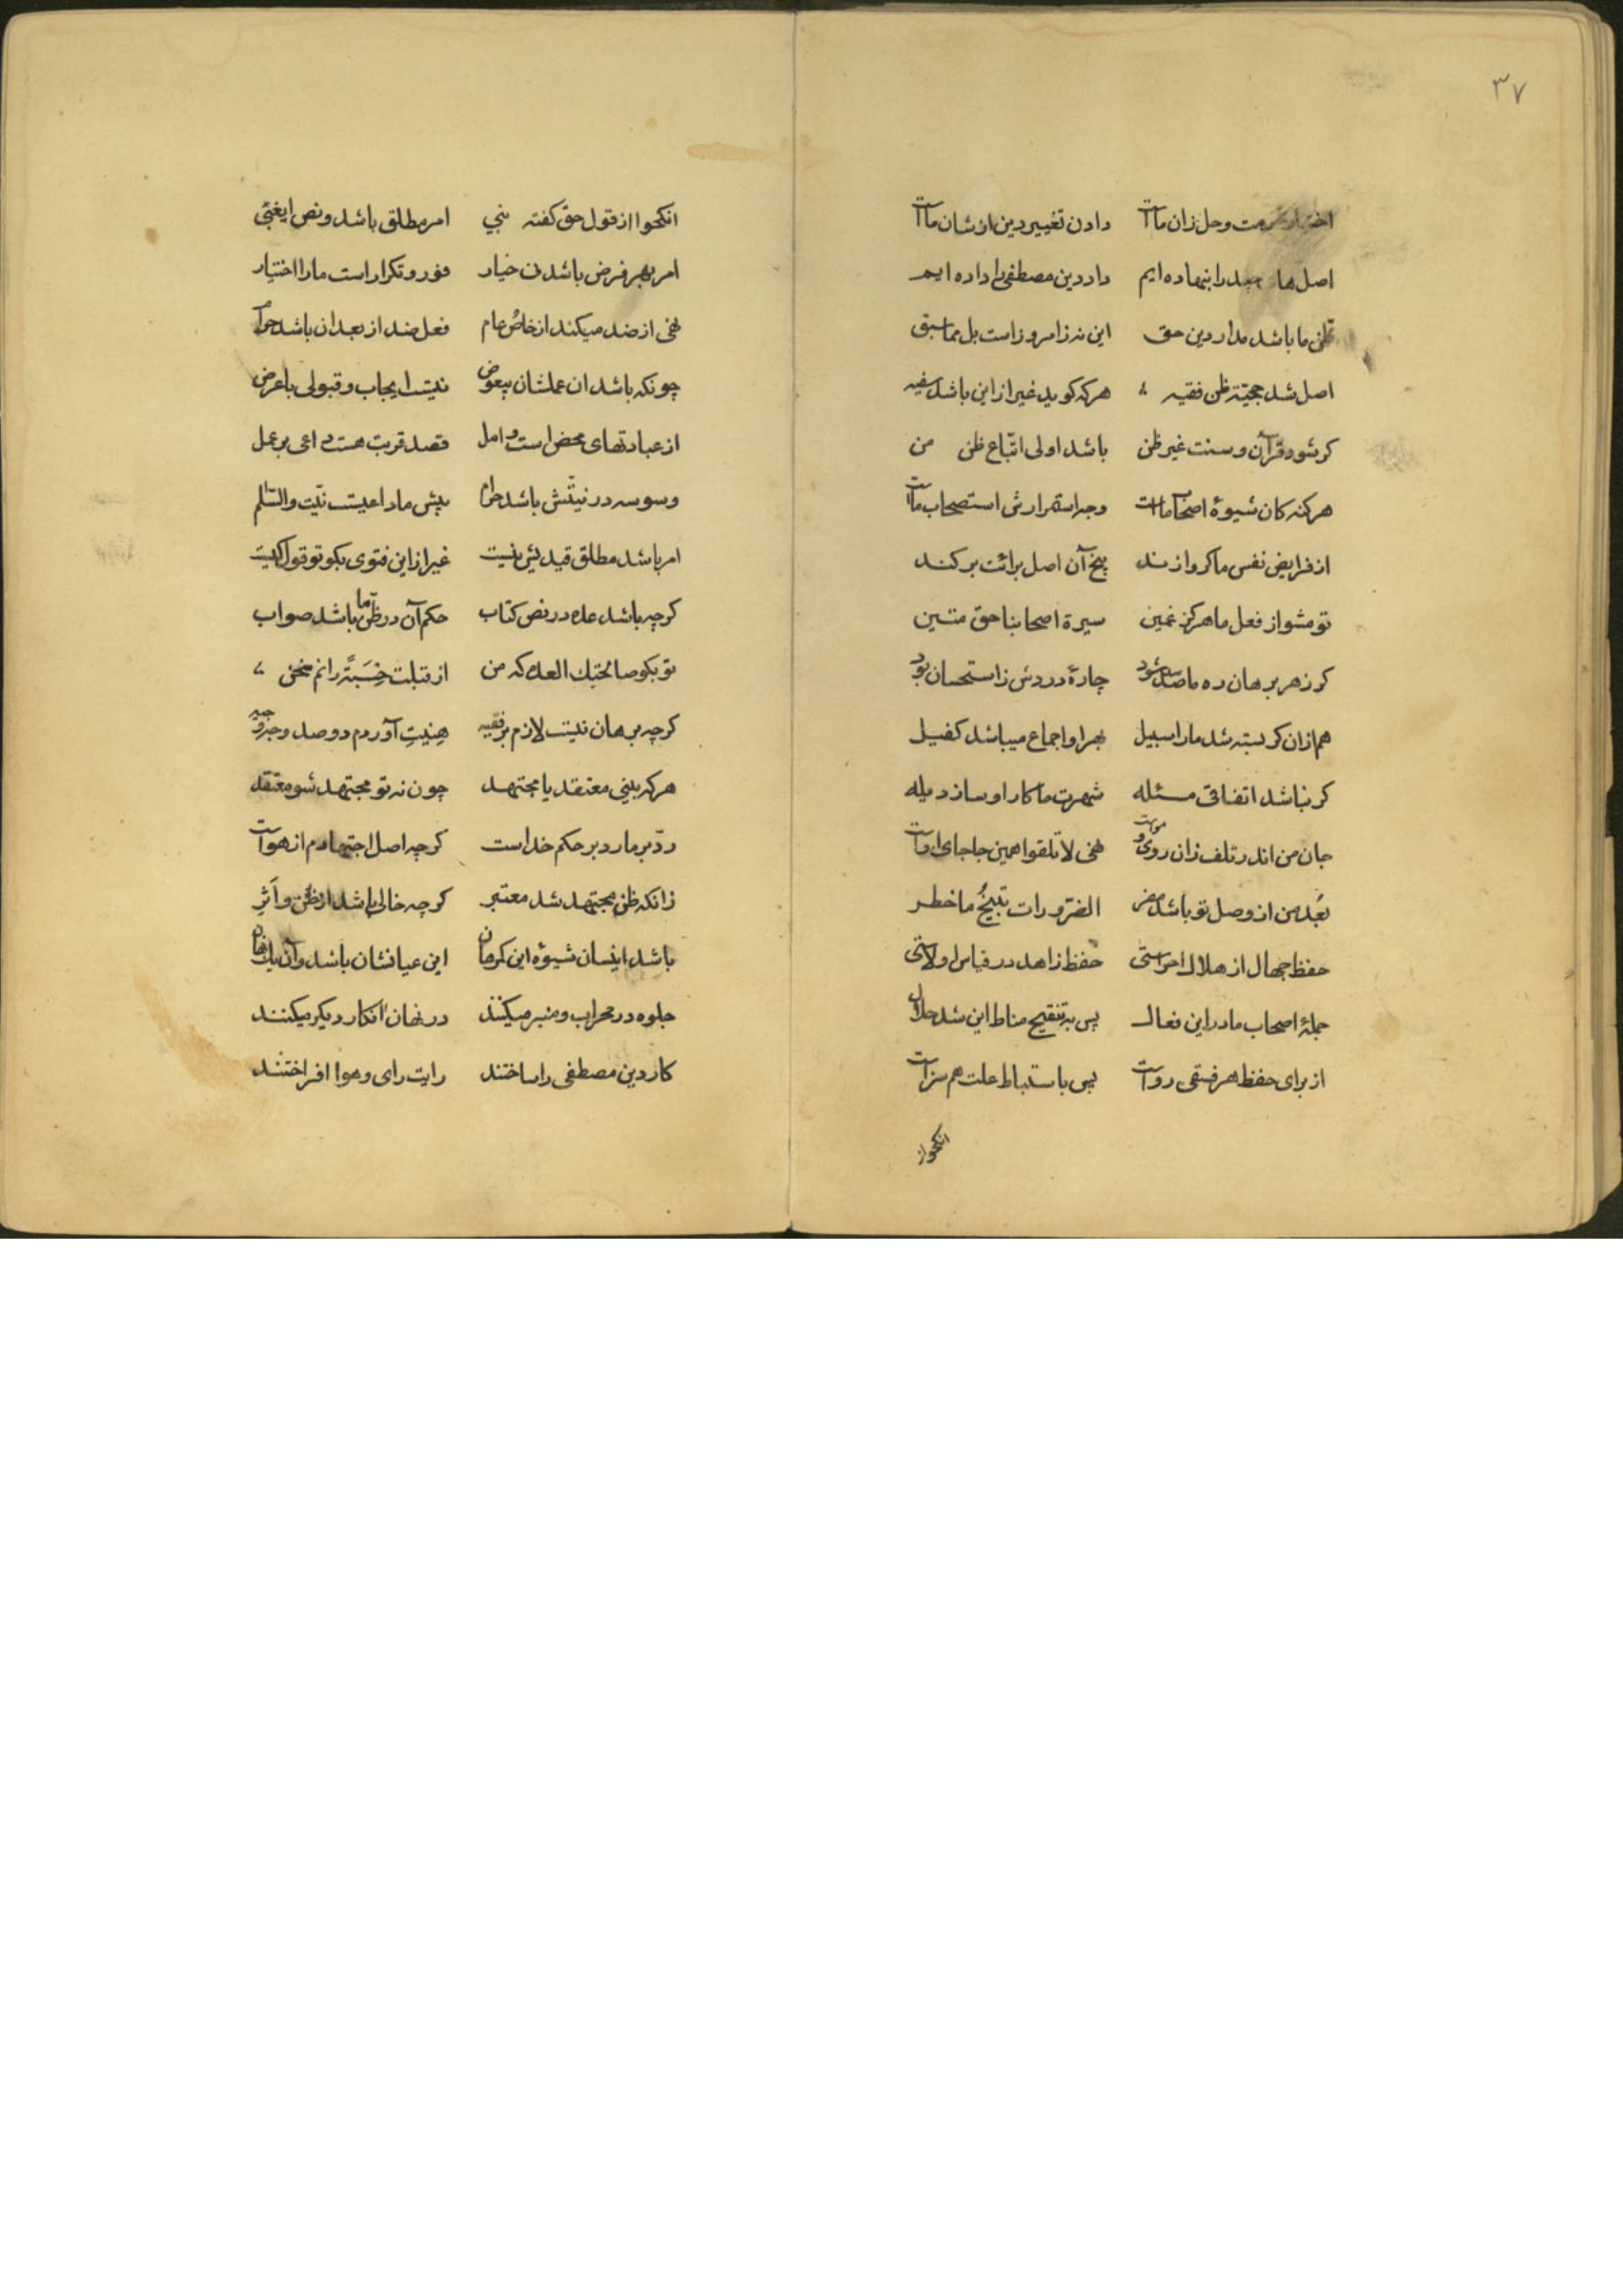 ٣٧
وحل زان ماست دادن تغییر دین از شان ماست
اصل ها را بنهاده ایم داد دین مصطفی را داده ایم
ظن ما باشد مدار دین حق این نه ز امروز است بل مما سبق
اصل شد حجیّة ظن فقیه هر که کوید غیر از این باشد سفیه
کر شود قرآن و سنت غیر ظن باشد اولی اتّباع ظن من
هر کنه کان شیوهٔ اصحاب ماست وجه استمرارش استصحاب ماست
از فرایض نفس ما کر وازند بیخ آن اصل برائت بر کند
تو مشو از فعل ما هرکز غمین سیرة اصحابنا حق متین
کر ز هر برهان ره ما سد شود چارهٔ دردش ز استحسان بود
هم ازان کر بسته شد ما را سبیل بهر او اجماع میباشد کفیل
کر نباشد اتفاقی مسئله شهرت ما کار او سازد یله
جان من اندر تلف زان روی و موست نهی لا تلقوا همین جا جای اوست
بُعد من از وصل تو باشد مضر الضّرورات تبیحُ ما خطر
حفظ جهال از هلاک احراستی حفظ زاهد در قیاس اولاستی
جملهٔ اصحاب ما در این فعال پس به تنقیح مناط این شد حلال
از برای حفظ هر فسقی رواست پس باستنباط علت هم سزاست
انکحوا از
انکحوا از قول حق کفته نبي امر مطلق باشد و نص ایغبی
امر بهر فرض باشد نی خیار فور و تکرار است ما را اختیار
نهی از ضد میکند از خاصُ عام فعل ضد از بعد ان باشد حرام
چونکه باشد ان عملشان بیعوض نیست ایجاب و قبولی با عرض
از عبادتهای محض است و امل قصد قربت هست داعی بر عمل
وسوسه در نیّتش باشد حرام پیش ما داعیست نیّت والسّلم
امر باشد مطلق قید یش نیست غیر از این فتوی بکو تو قول کیست
کرچه باشد عده در نص کتاب حکم آن در ظنّ ما باشد صواب
تو بکو صالحتک العده که من از قبلت حِسبَةً رانم سخن
کرچه برهان نیست لازم بر فقیه آوردم دو صد وجه وجیه
هر که بینی معتقد یا مجتهد چون نه تو مجتهد شو معتقد
ردّ بر ما رد بر حکم خداست کرچه اصل اجتهادم از هواست
زانکه ظن مجتهد شد معتبر کرچه خالی باشد از ظن و اَثرِ
باشد اینسان شیوه این کرمان این عیانشان باشد و آن یک نهان
جلوه در محراب و منبر میکنند در نهان انکار دیکر میکنند
کار دین مصطفی را ساختند رایت رای و هوا افراختند